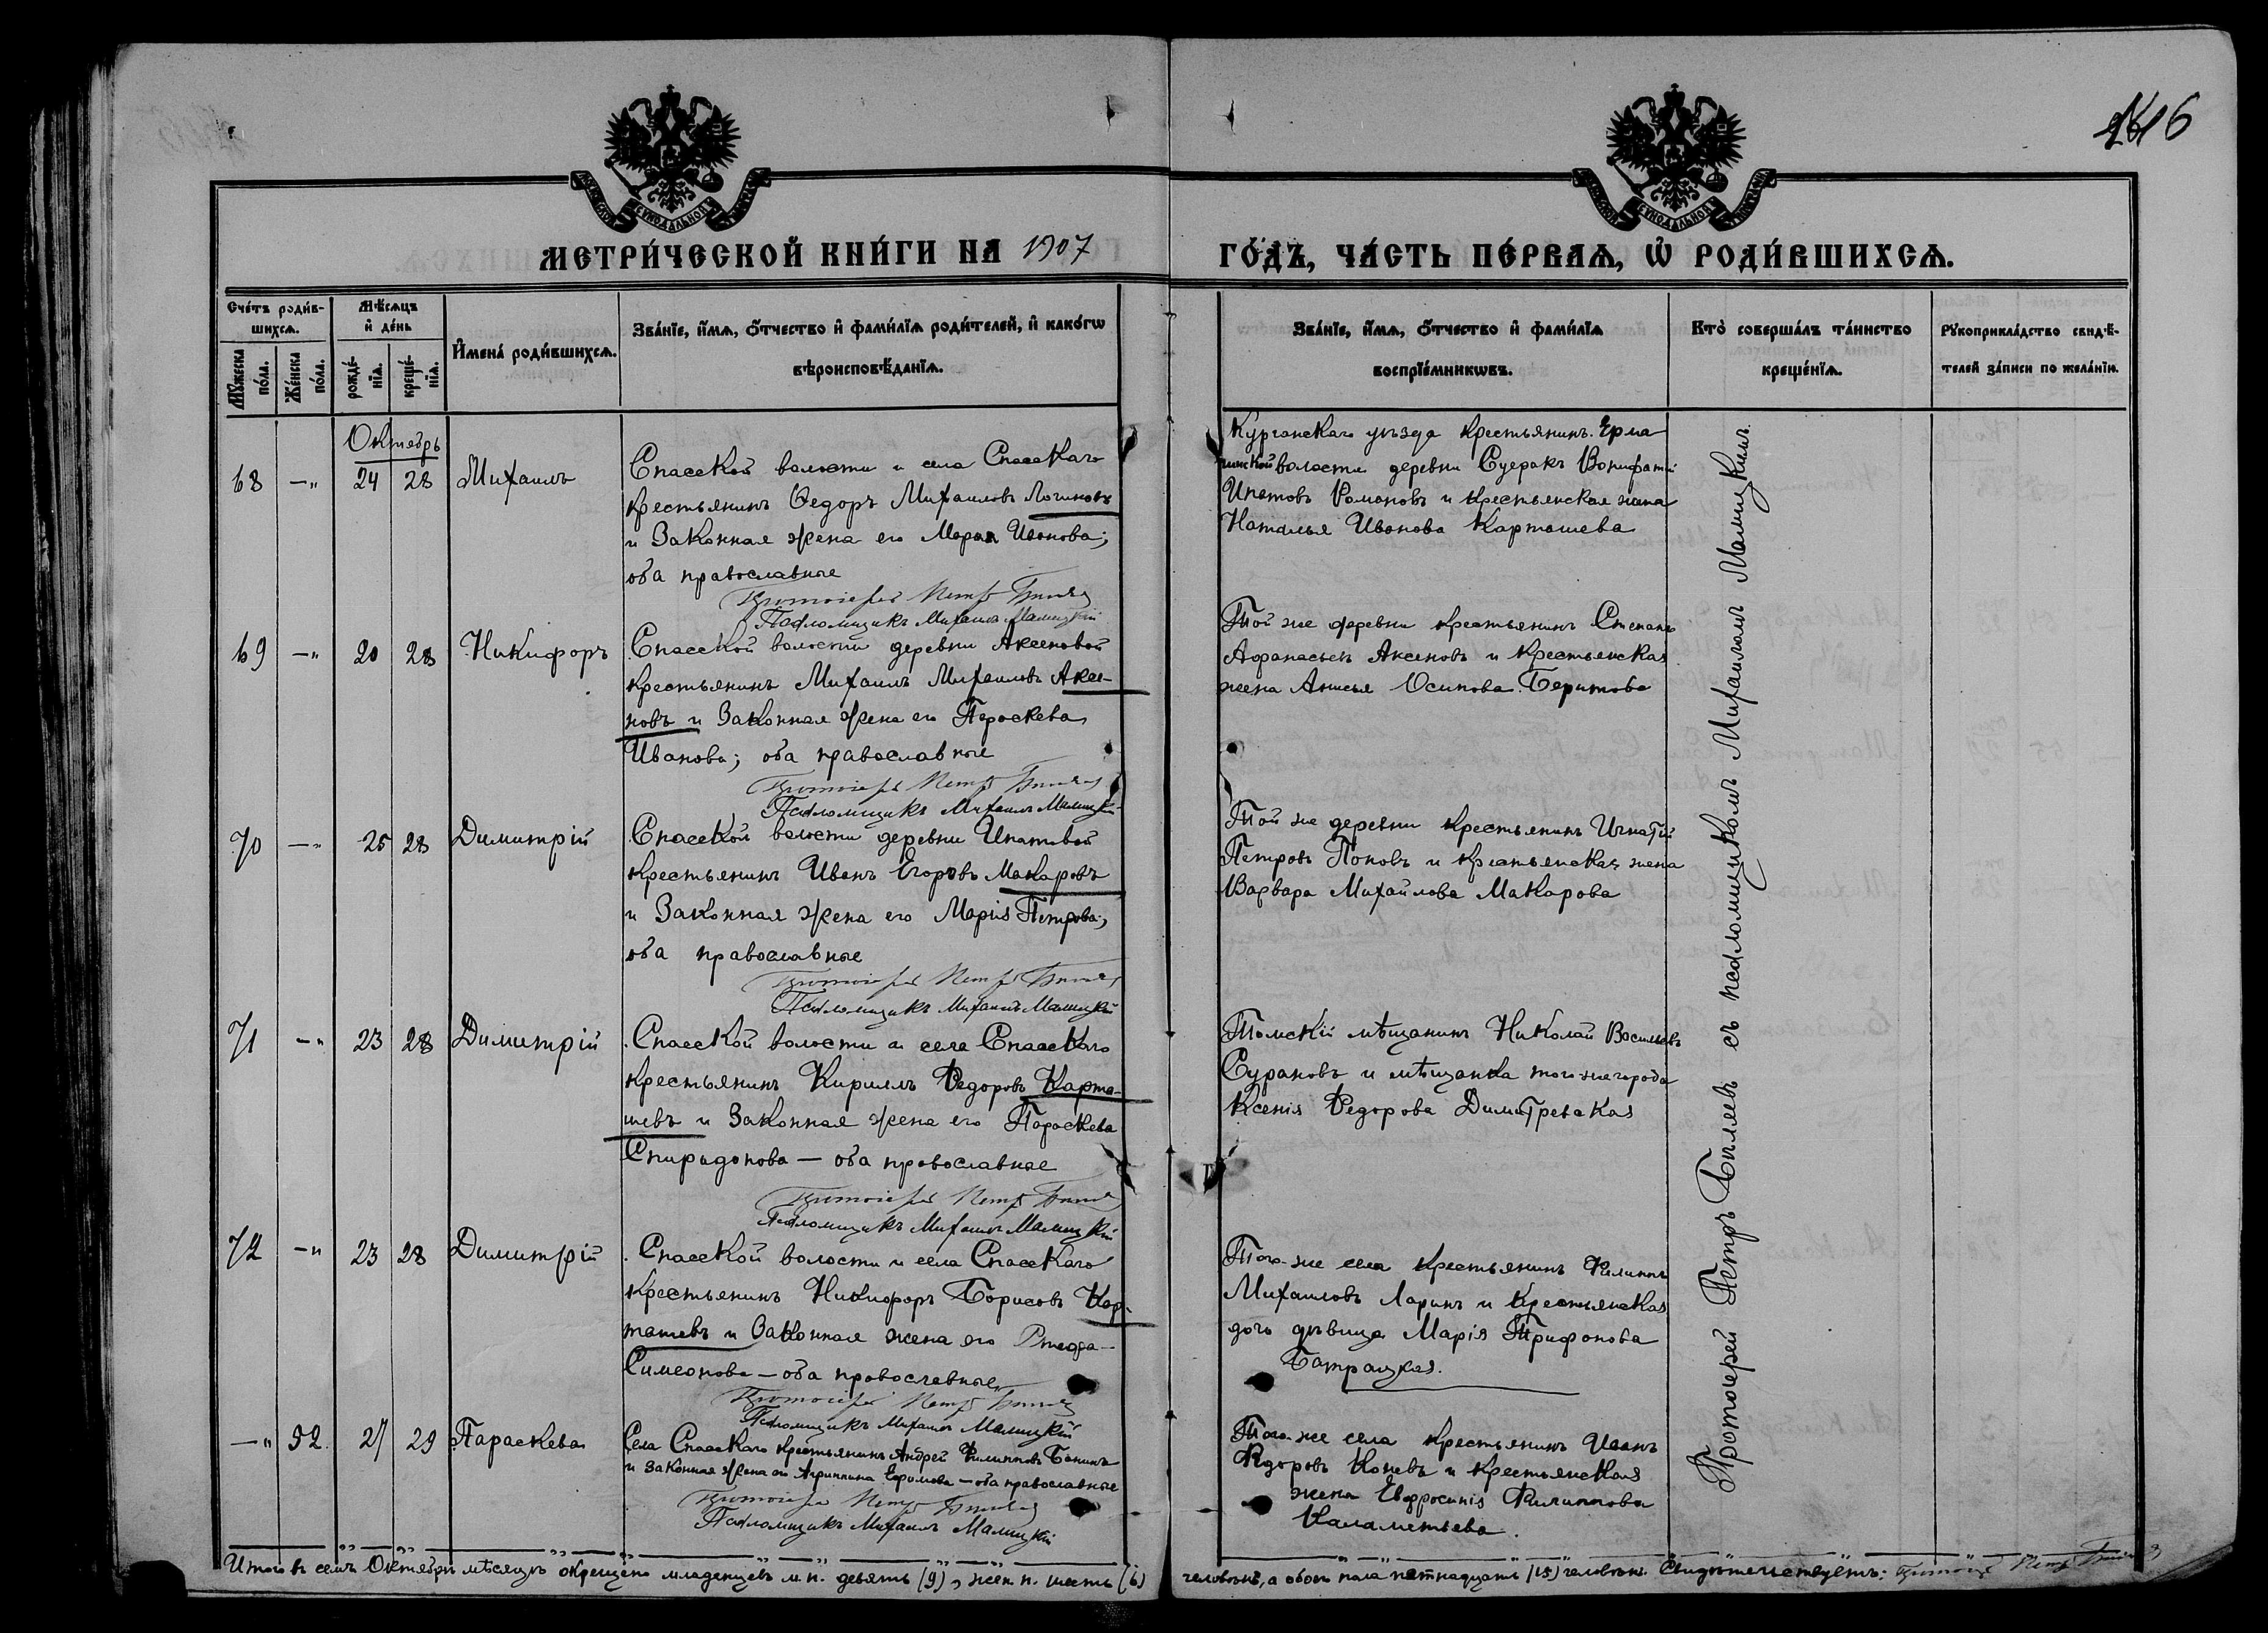 16
МЕТРИ́ЧЕСКОЙ КНИ́ГИ НА 1907
ГО́ДЪ, ЧА́СТЬ ПЕ́РВАѦ, Ѽ РОДИ́ВШИХСѦ.
Сче́тъ роди́в-
шихсѧ.
Мѣ́сѧцъ
и҆ де́нь
И҆мена́ роди́вшихсѧ.
Зва́нїе, и҆́мѧ, ѻ҆́тчество и҆ фами́лїѧ роди́телей, и҆ како́гѡ
вѣроисповѣ́данїѧ.
Мꙋ́жеска по́ла.
Же́нска по́ла.
рожде́-
нїѧ.
креще́-
нїѧ.
Зва́нїе, и҆́мѧ, ѻ҆́тчество и҆ фами́лїѧ
воспрїе́мникѡвъ.
Кто̀ соверша́лъ та́инство
креще́нїѧ.
Рꙋкоприкла́дство свидѣ́-
телей за́писи по жела́нїю.
Октябрь
68 —„ 24 28 Михаилъ
Спасской волости и села Спасскаго
крестьянинъ Ѳедоръ Михаиловъ Логиновъ
и законная жена его Марія Иванова;
оба православные
Протоіерей Петръ Биляев
Псаломщикъ Михаилъ Малицкій
Курганскаго уѣзда крестьянинъ Ерма
волости деревни Суеракъ Вонифатій
Ипатовъ Романовъ и крестьянская жена
Наталья Иванова Карташева
69 —„ 20 28 Никифоръ
Спасской волости деревни Аксеновой
крестьянинъ Михаилъ Михаиловъ Аксе-
новъ и законная жена его Параскева
Иванова; оба православные
Протоіерей Петръ Биляев
Псаломщикъ Михаилъ Малицкій
Той же деревни крестьянинъ Степанъ
Афанасьевъ Аксеновъ и крестьянская
жена Анисья Осипова
70 —„ 25 28 Димитрій
Спасской волости деревни Ипатовой
крестьянинъ Иванъ Егоровъ Макаровъ
и законная жена его Марія Петрова;
оба православные
Протоіерей Петръ Биляев
Псаломщикъ Михаилъ Малицкій
Той же деревни крестьянинъ Игнатій
Петровъ Поповъ и крестьянская жена
Варвара Михайлова Макарова
71 —„ 23 28 Димитрій
Спасской волости и села Спасскаго
крестьянинъ Кириллъ Федоровъ Карта-
шевъ и законная жена его Параскева
Спиридонова — оба православные
Протоіерей Петръ Биляев
Псаломщикъ Михаилъ Малицкій
Томскій мѣщанинъ Николай Васильевъ
Сурановъ и мѣщанка того же города
Ксенія Федорова
72 —„ 23 28 Димитрій
Спасской волости и села Спасскаго
крестьянинъ Никифоръ Борисовъ Кар-
ташевъ и законная жена его
Симеонова — оба православные
Протоіерей Петръ Биляев
Псаломщикъ Михаилъ Малицкій
Того-же села крестьянинъ Филиппъ
Михаиловъ Ларинъ и крестьянская
дочь дѣвица Марія Трифонова
Батрацкая.
—„ 52. 27 29 Параскева
Села Спасскаго крестьянинъ Андрей Филипповъ Банинъ
и законная жена его Агриппина Ефимова — оба православные
Протоіерей Петръ Биляев
Псаломщикъ Михаилъ Малицкій
Того-же села крестьянинъ Иванъ
Федоровъ Коневъ и крестьянская
жена Евфросинія Филиппова
Каламетьева.
Протоіерей Петръ Биляевъ съ псаломщикомъ Михаиломъ Малицкимъ.
Итого въ семъ Октябрѣ мѣсяцѣ окрещено младенцевъ м. п. девять (9), жен. п. шесть (6)
человѣкъ, а обоего пола пятнадцать (15) человѣкъ. Свидѣтельствуетъ: Протоіерей Петръ Биляев